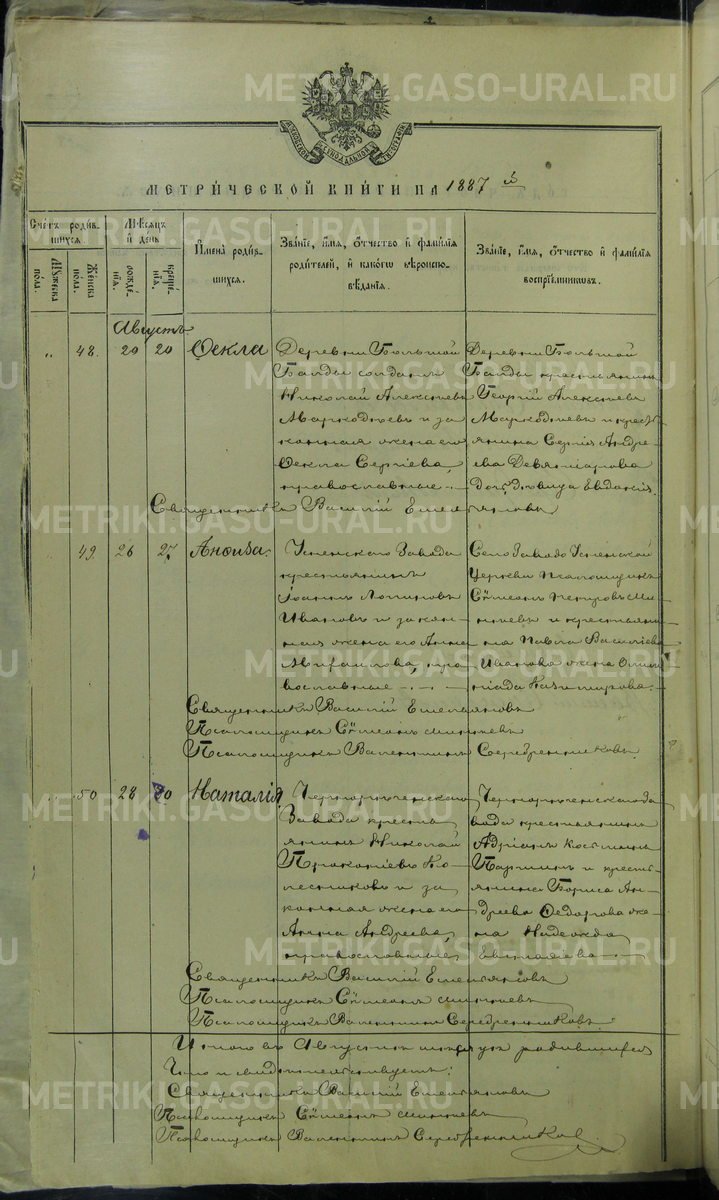 METRIKI.GASO-URAL.RU
МЕТРИЧЕСКОЙ КНИГИ НА 1887 й
Счетъ родив-
шихся.
Мужеска
пола.
Женска
пола.
Мѣсяцъ
и день
рожде-
нія.
креще-
нія.
Имена родив-
шихся.
Званіе, имя, отчество и фамилія
родителей, и какого вѣроиспо-
вѣданія.
Званіе, имя, отчество и фамилія
воспріемниковъ.
Августъ.
„ 48. 20 20 Ѳекла
Деревни Большой
солдатъ
Николай Алексѣевъ
и за
конная жена его
Ѳекла Сергіева,
православные.
Деревни Большой
крестьянинъ
Георгій Алексѣевъ
и крестъ
янина Сергія Андре-
ева
дочь дѣвица Евдокія.
Священникъ Василій Емельяновъ
„ 49. 26 27. Анѳиза.
Успенскаго Завода
крестьянинъ
Іоаннъ
Ивановъ и закон-
ная жена его Анна
Михаилова, пра
вославные
Село Заводо Успенской
Церкви Псаломщикъ
Сѷмеонъ Петровъ Ми-
нѣевъ и крестьяни
на Павла Василіева
Иванова жена Олим
піада
Священникъ Василій Емельяновъ
Псаломщикъ Сѷмеонъ Минѣевъ
Псаломщикъ Валентинъ Серебренниковъ
„ 50 28 30 Наталія
Чернорѣченскаго
Завода кресть
янинъ Николай
Ко-
лесниковъ и за
конная жена его
Анна Андреева,
православные
Чернорѣченскаго За
вода крестьянинъ
Адріанъ Косминъ
Паршинъ и кресть
янина Бориса Ан-
дреева Ѳедорова же-
на Надежда
Священникъ Василій Емельяновъ
Псаломщикъ Сѷмеонъ Минѣевъ
Псаломщикъ Валентинъ Серебренниковъ.
Итого въ Августѣ родившихся
Что и свидѣтельствуетъ:
Священникъ Василій Емельяновъ
Псаломщикъ Сѷмеонъ Минѣевъ
Псаломщикъ Валентинъ Серебренниковъ.